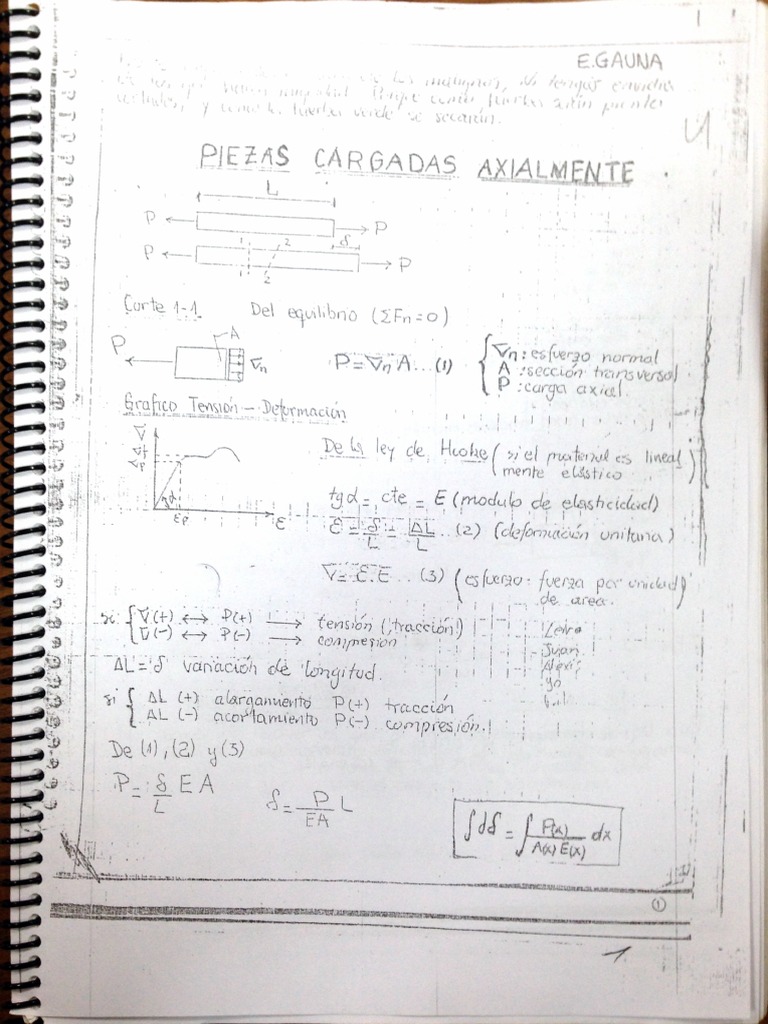 E. GAUNA
los malignos, No tengas envidia
y como la hierba verde se secarán.
PIEZAS CARGADAS AXIALMENTE
L
P P
1 2 δ
P P
1 2
Corte 1-1. Del equilibrio (ΣFn=0)
P A ∇n P=∇n A... (1)
∇n: esfuerzo normal
A : sección transversal
P : carga axial.
Grafico Tensión - Deformación
∇
∇f
∇p
α
εp ε
De la ley de Hooke (si el material es lineal
mente elástico)
tgα = cte = E (modulo de elasticidad)
ε = δ/L = ΔL/L ...(2) (deformación unitaria)
∇= ε.E ... (3) (esfuerzo: fuerza por unidad
de area.)
si { ∇(+) ↔ P(+) → tensión (tracción!)
∇(-) ↔ P(-) → compresión
Juan
Alexis
Yo
ΔL = δ variación de longitud.
si { ΔL (+) alargamiento P(+) tracción
ΔL (-) acortamiento P(-) compresión.!
De (1), (2) y (3)
P = δ/L E A
δ = P/EA L
∫dδ = ∫ P(x)/A(x) E(x) dx
1
1